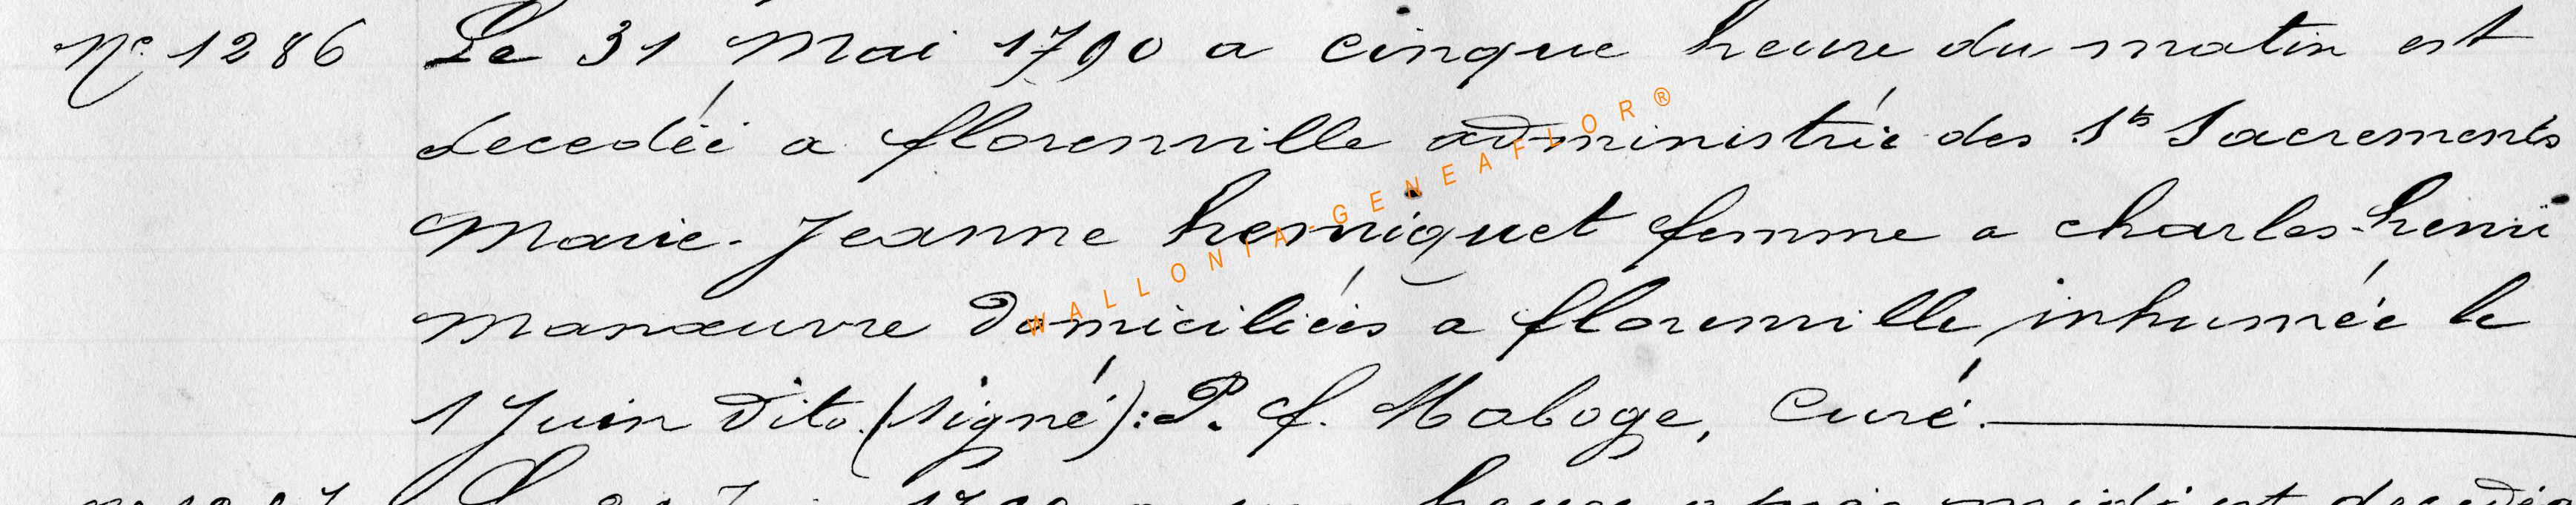 N° 1286 Le 31 Mai 1790 a cinque heure du matin est
decedéé a florenville administrée des Sts Sacrements
Marie-Jeanne henriquet femme a charles-henri
manœuvre domiciliées a florenville, inhumée le
1 Juin dito. (signé): P. f. Maboge, Curé.
WALLONIA-GENEAFLOR®
heure